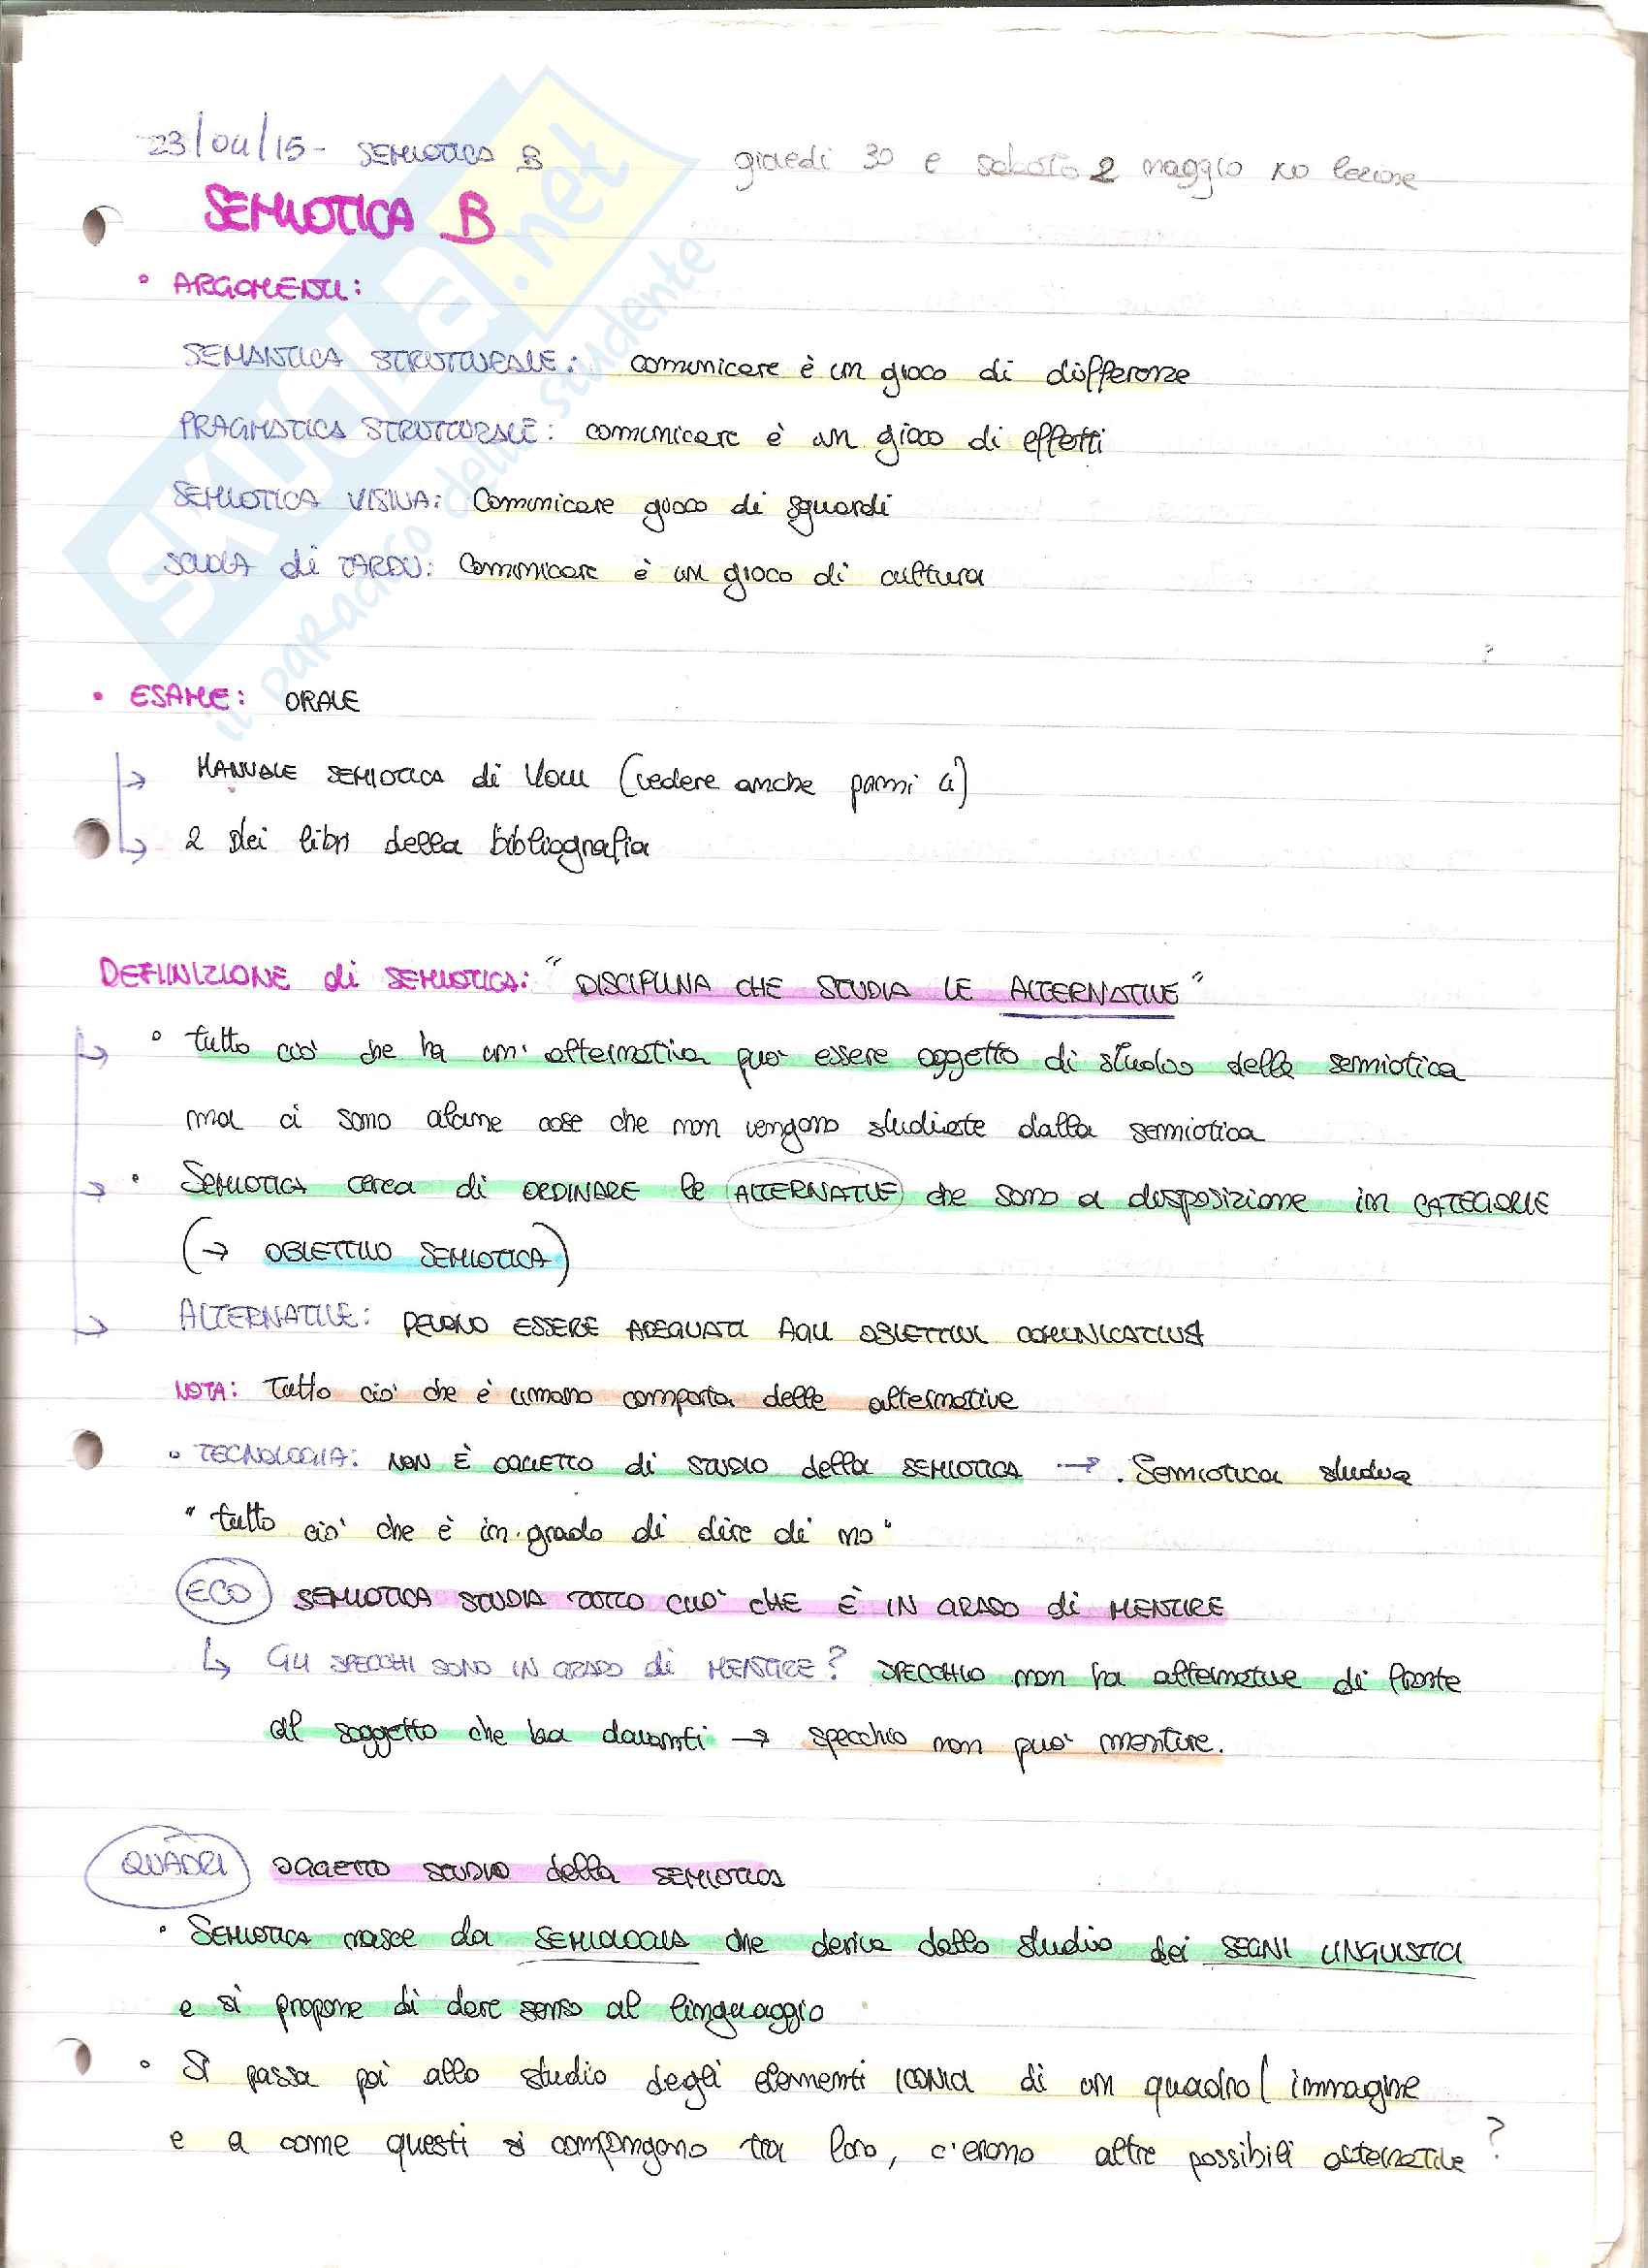 23/04/15 - SEMIOTICA B
giovedì 30 e sabato 2 maggio no lezione
SEMIOTICA B
• ARGOMENTI:
SEMANTICA STRUTTURALE: comunicare è un gioco di differenze
PRAGMATICA STRUTTURALE: comunicare è un gioco di effetti
SEMIOTICA VISIVA: Comunicare gioco di sguardi
SCUOLA di TARTU: Comunicare è un gioco di cultura
?
• ESAME: ORALE
↳ MANUALE SEMIOTICA di Volli (vedere anche
↳ 2 dei libri della bibliografia
DEFINIZIONE di SEMIOTICA: "DISCIPLINA CHE STUDIA LE ALTERNATIVE"
↳ • tutto ciò che ha un'alternativa può essere oggetto di studio della semiotica
ma ci sono alcune cose che non vengono studiate dalla semiotica
↳ • SEMIOTICA cerca di ORDINARE le ALTERNATIVE che sono a disposizione in CATEGORIE
(→ OBIETTIVO SEMIOTICA)
↳ ALTERNATIVE: DEVONO ESSERE ADEGUATI AGLI OBIETTIVI COMUNICATIVI
NOTA: Tutto ciò che è umano comporta delle alternative
• TECNOLOGIA: NON È OGGETTO di STUDIO della SEMIOTICA → Semiotica studia
"tutto ciò che è in grado di dire di no"
ECO SEMIOTICA STUDIA TUTTO CIÒ CHE È IN GRADO di MENTIRE
↳ GLI SPECCHI SONO IN GRADO di MENTIRE? SPECCHIO non ha alternative di fronte
al soggetto che ha davanti → specchio non può mentire.
QUADRI OGGETTO STUDIO della SEMIOTICA
• SEMIOTICA nasce da SEMIOLOGIA che deriva dallo studio dei SEGNI LINGUISTICI
e si propone di dare senso al linguaggio
• Si passa poi allo studio degli elementi ICONICI di un quadro/immagine
e a come questi si compongono tra loro, c'erano altre possibili alternative?
SKUOLA.net
il paradiso dello studente